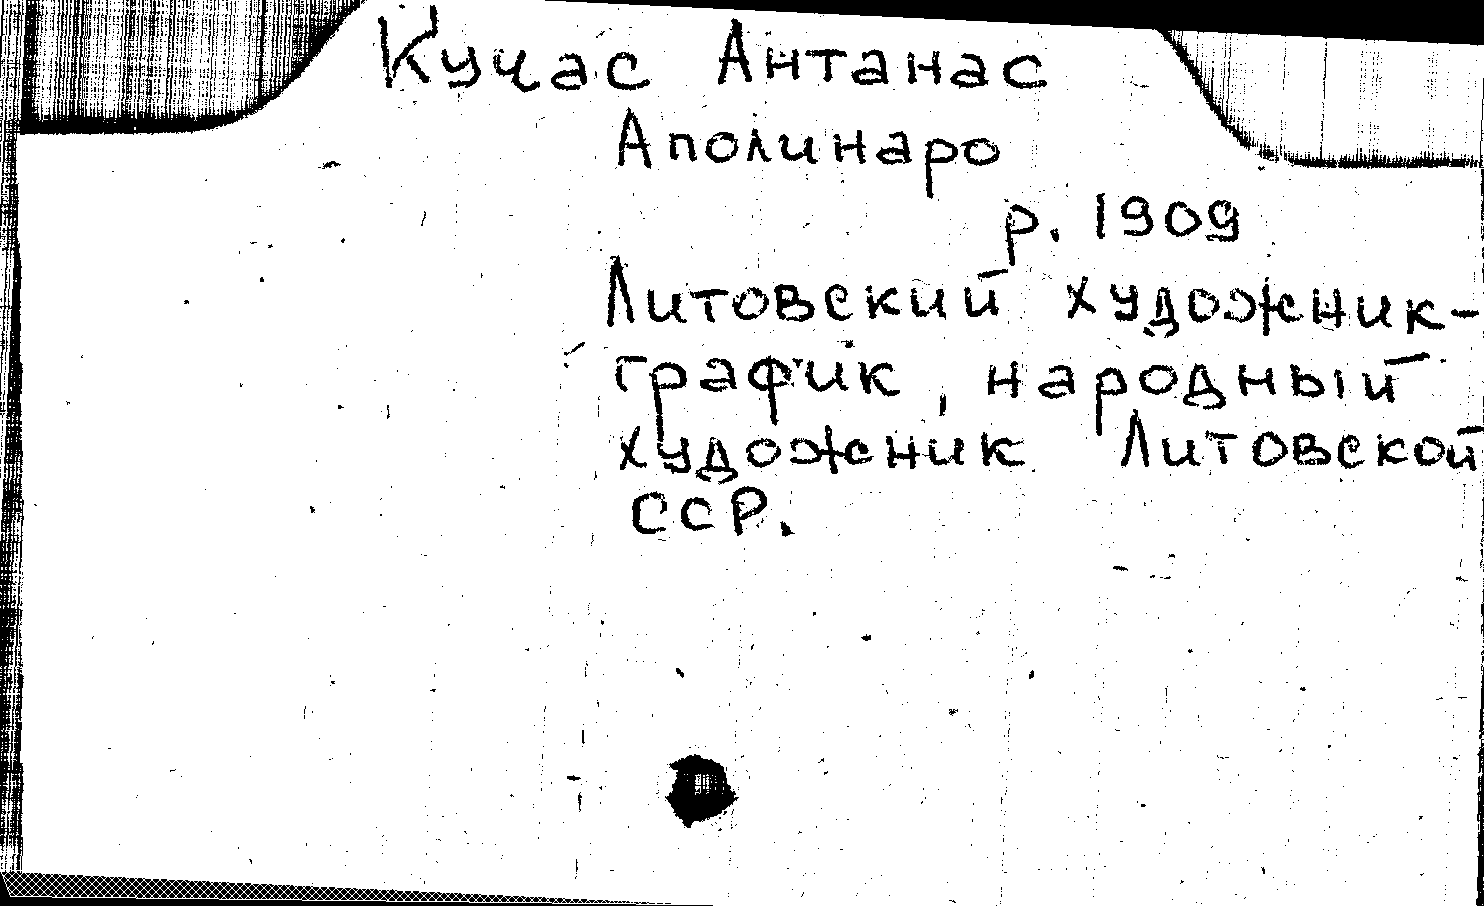 Кучас Антанас
Аполинаро
р. 1909
Литовский художник-
график, народный
художник Литовской
ССР.